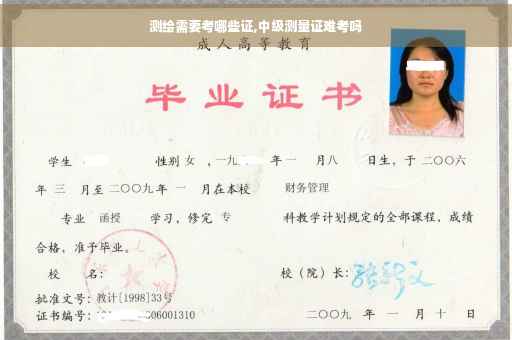 测绘需要考哪些证,中级测量证难考吗
成人高等教育
毕业证书
学生 性别 女 ,一九 年一 月八 日生，于二〇〇六
年 三 月至二〇〇九年 一 月在本校 财务管理
专业 函授 学习，修完 专 科教学计划规定的全部课程，成绩
合格，准予毕业。
校 名： 校（院）长：
批准文号：教计[1998]33号
证书编号： 06001310 二〇〇九 年 一 月 十 日